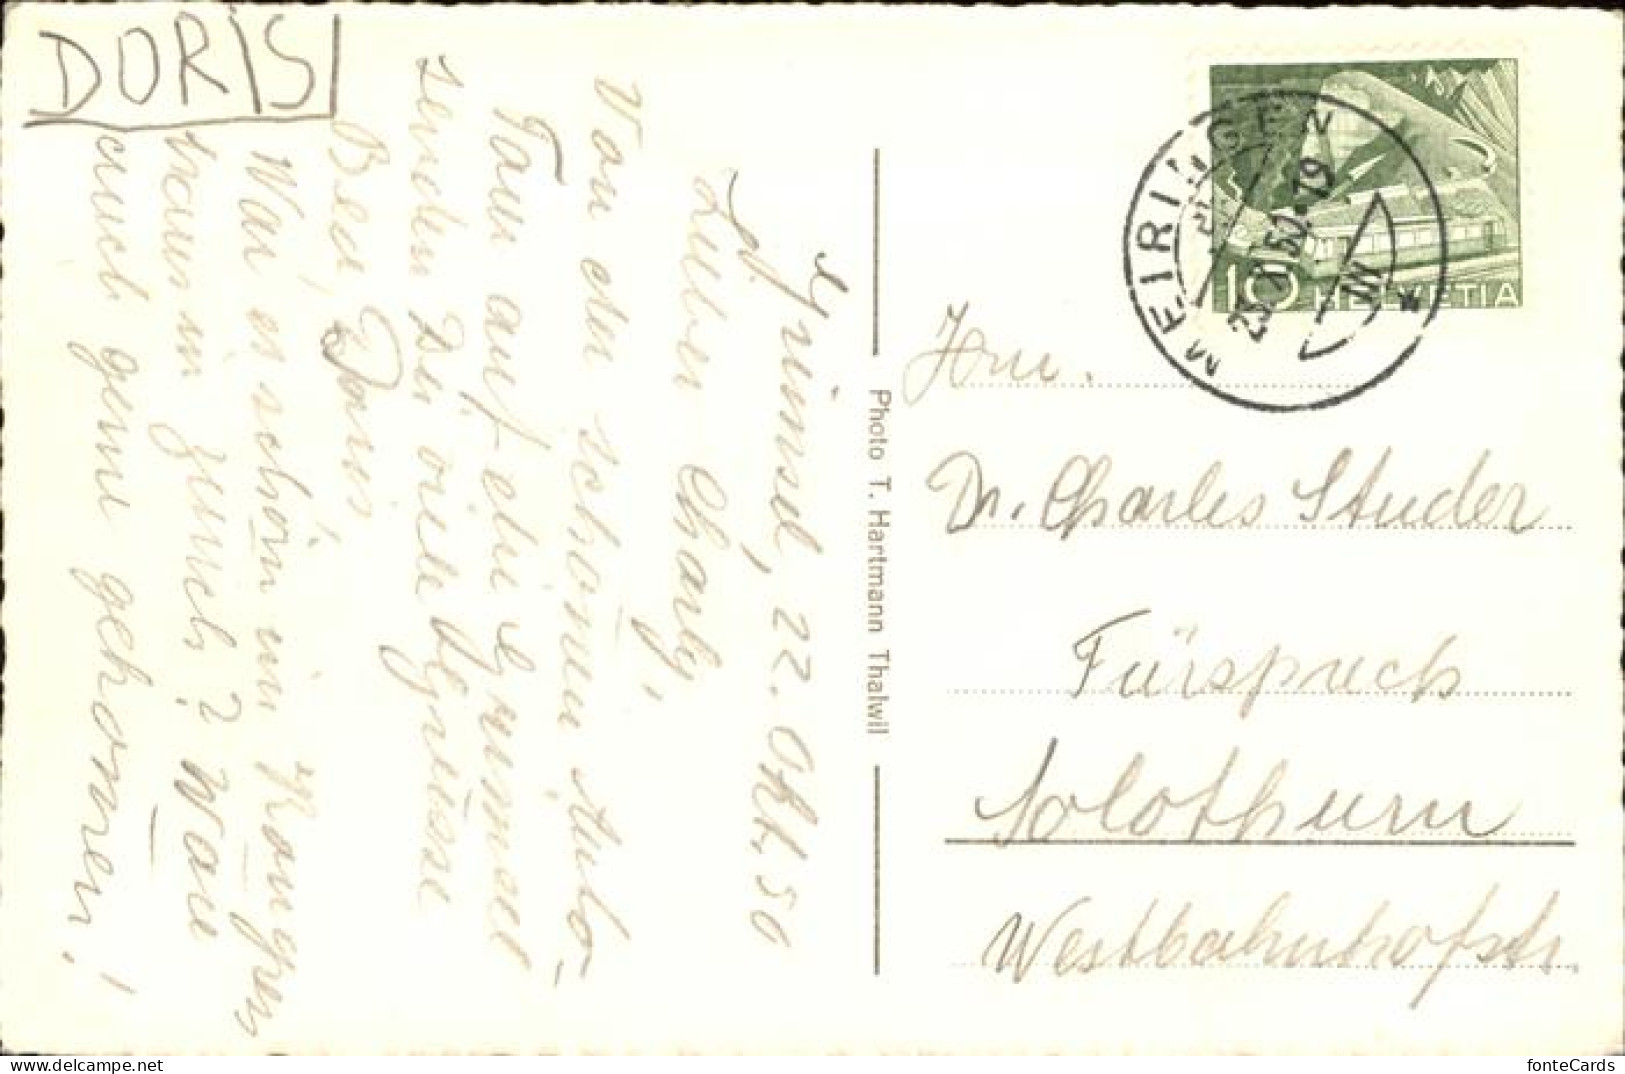 DORIS
Grimsel, 22. Okt. 50
Lieber Charly,
Von der schönen Auto-
Tour auf die Grimsel
senden Dir viele Grüsse
Bea, Doris
War es schön im Kongress
haus in Zürich? Wäre
auch gerne gekommen!
Photo T. Hartmann Thalwil
MEIRINGEN
23. X. 50. -19
10 HELVETIA
Hrn.
Dr. Charles Studer
Fürsprech
Solothurn
Westbahnhofstr.
fonteCards
www.delcampe.net